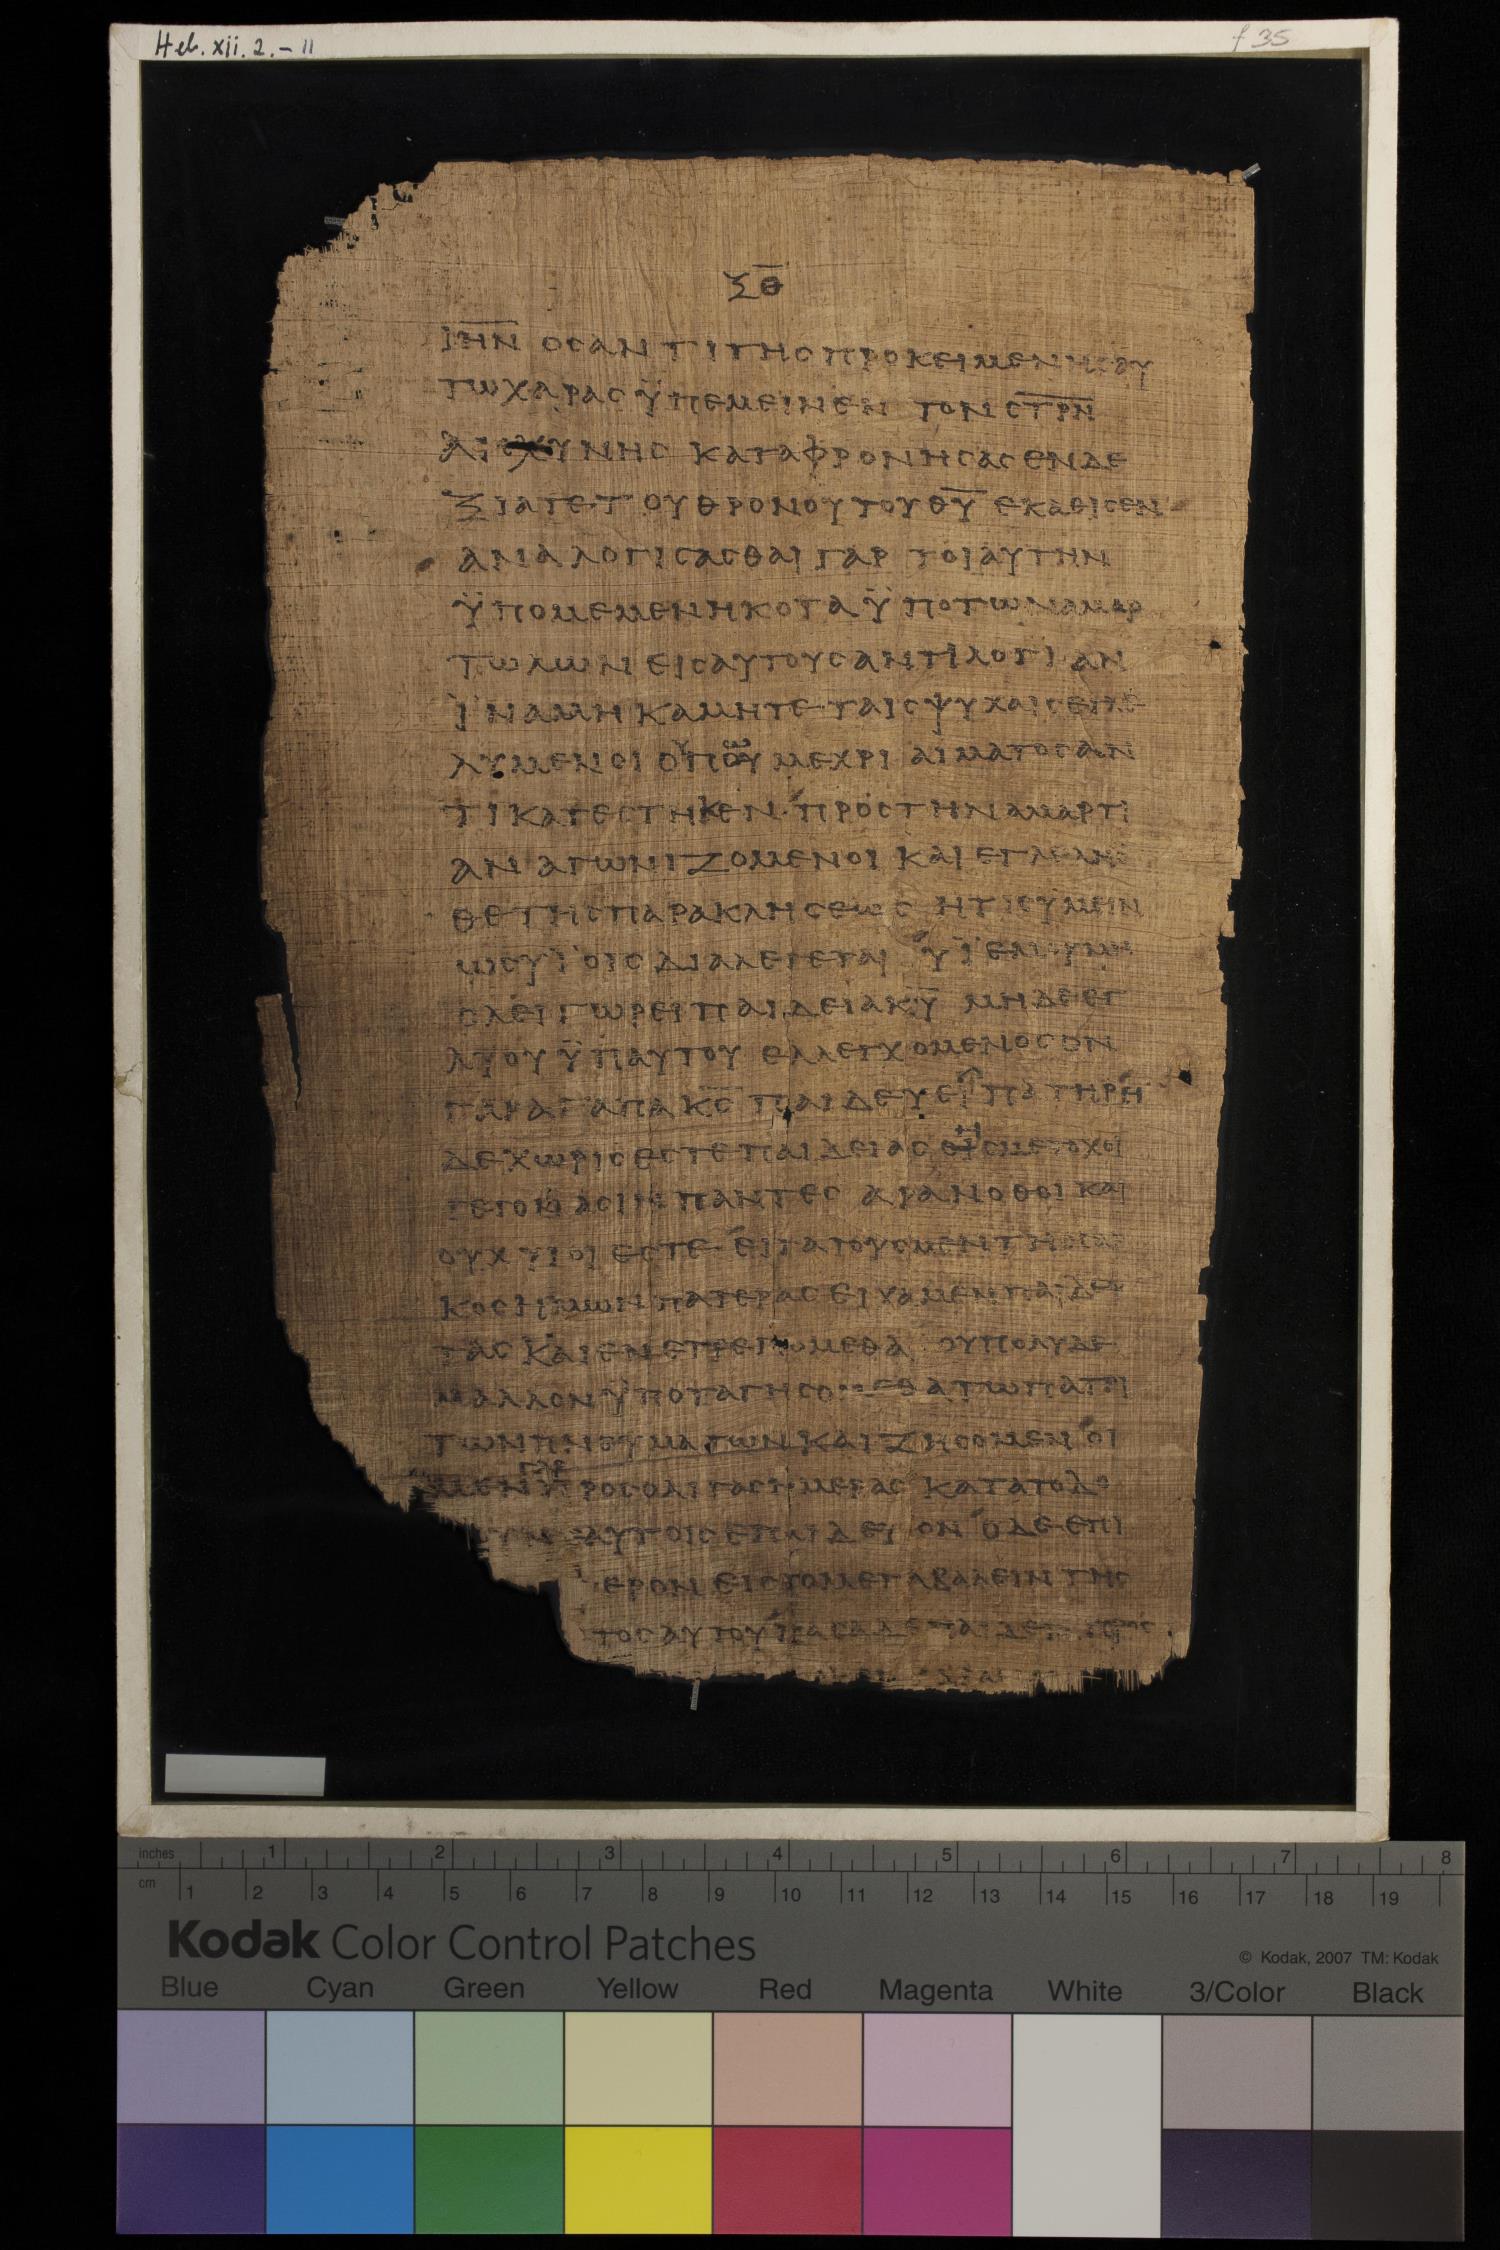 Heb. xii. 2. - 11
f 35
ξθ̅
ι̅η̅ν̅ οσ αντι της προκειμενης αυ
τω χαρας ϋπεμεινεν τον στ̅ρ̅ν̅
αισχυνης καταφρονησας εν δε
ξια τε του θρονου του θ̅υ̅ εκαθισεν
αναλογισασθαι γαρ τοιαυτην
ϋπομεμενηκοτα ϋπο των αμαρ
τωλων εις αυτους αντιλογιαν
ϊνα μη καμητε ταις ψυχαις
λυμενοι μεχρι αιματος αν
τικατεστηκεν προς την αμαρτι
αν αγωνιζομενοι και εγλελησ
θε της παρακλησεως ητις υμιν
ως υϊοις διαλεγεται υϊε μου μη
ολειγωρει παιδεια κ̅υ̅ μηδε εγ
λυου ϋπ αυτου ελλεγχομενος ον
γαρ αγαπα κ̅ς̅ παιδευει πατηρ η
δε χωρις εστε παιδειας ης μετοχοι
γεγονασιν παντες αρα νοθοι και
ουχ υιοι εστε ειτα τους μεν της σαρ
κος ημων πατερας ειχαμεν παιδευ
τας και ενετρεπομεθα ου πολυ δε
μαλλον ϋποταγησομεθα τω πατρι
των πνευματων και ζησομεν οι
μεν γαρ προς ολιγας ημερας κατα το δο
κουν αυτοις επαιδευον ο δε επι
φερον εις το μεταβαλειν της
τος αυτου πασα δε παιδεια προς
inches 1 2 3 4 5 6 7 8
cm 1 2 3 4 5 6 7 8 9 10 11 12 13 14 15 16 17 18 19
Kodak Color Control Patches
© Kodak, 2007 TM: Kodak
Blue Cyan Green Yellow Red Magenta White 3/Color Black